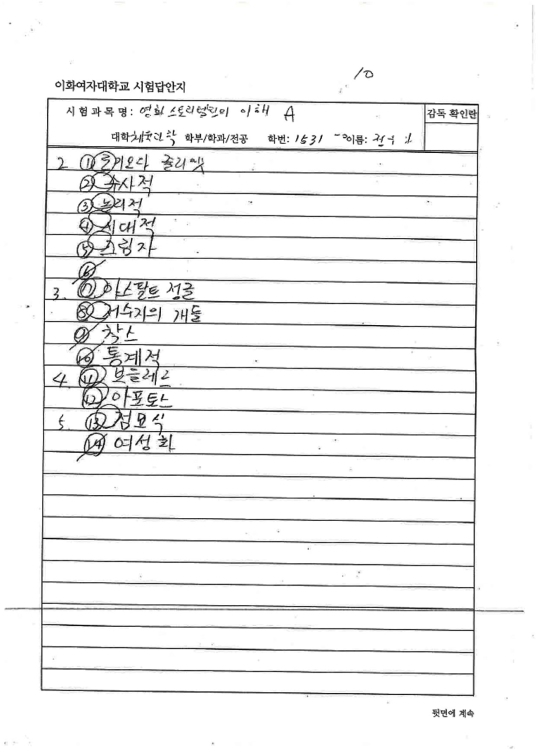 10
이화여자대학교 시험답안지
시 험 과 목 명 : 영화 스토리텔링의 이해 A
감독 확인란
대학 학부/학과/전공 학번: 1531 이름:
2 ① 줄리엣
② 수사적
③ 논리적
④ 시대적
⑤ 그림자
⑥
3. ⑦ 아스팔트 정글
⑧ 저수지의 개들
⑨ 착스
⑩ 통계적
4 ⑪ 보들레르
⑫ 아포토스
5 ⑬ 점묘식
⑭ 여성화
뒷면에 계속